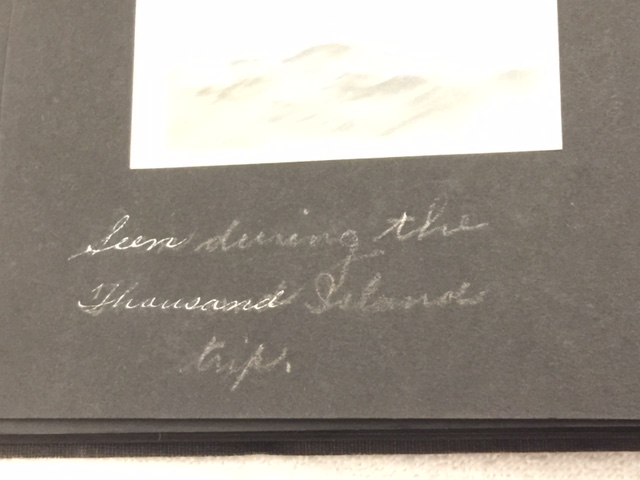 Seen during the
Thousand Islands
trip.